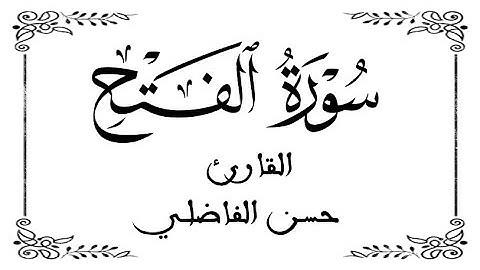 سُورَةُ ٱلْفَتْحِ
القارئ
حسن الفاضلي